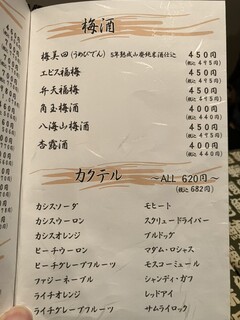 梅酒
梅美田(うめびでん) 5年熟成山廃純米酒仕込 450円
(税込 495円)
エビス福梅 450円
(税込 495円)
弁天福梅 450円
(税込 495円)
角玉梅酒 400円
(税込 440円)
八海山梅酒 450円
(税込 495円)
杏露酒 400円
(税込 440円)
カクテル ~ALL 620円~
(税込 682円)
カシスソーダ モヒート
カシスウーロン スクリュードライバー
カシスオレンジ ブルドッグ
ピーチウーロン マダム・ロシャス
ピーチグレープフルーツ モスコミュール
ファジーネーブル シャンディ・ガフ
ライチオレンジ レッドアイ
ライチグレープフルーツ サムライロック